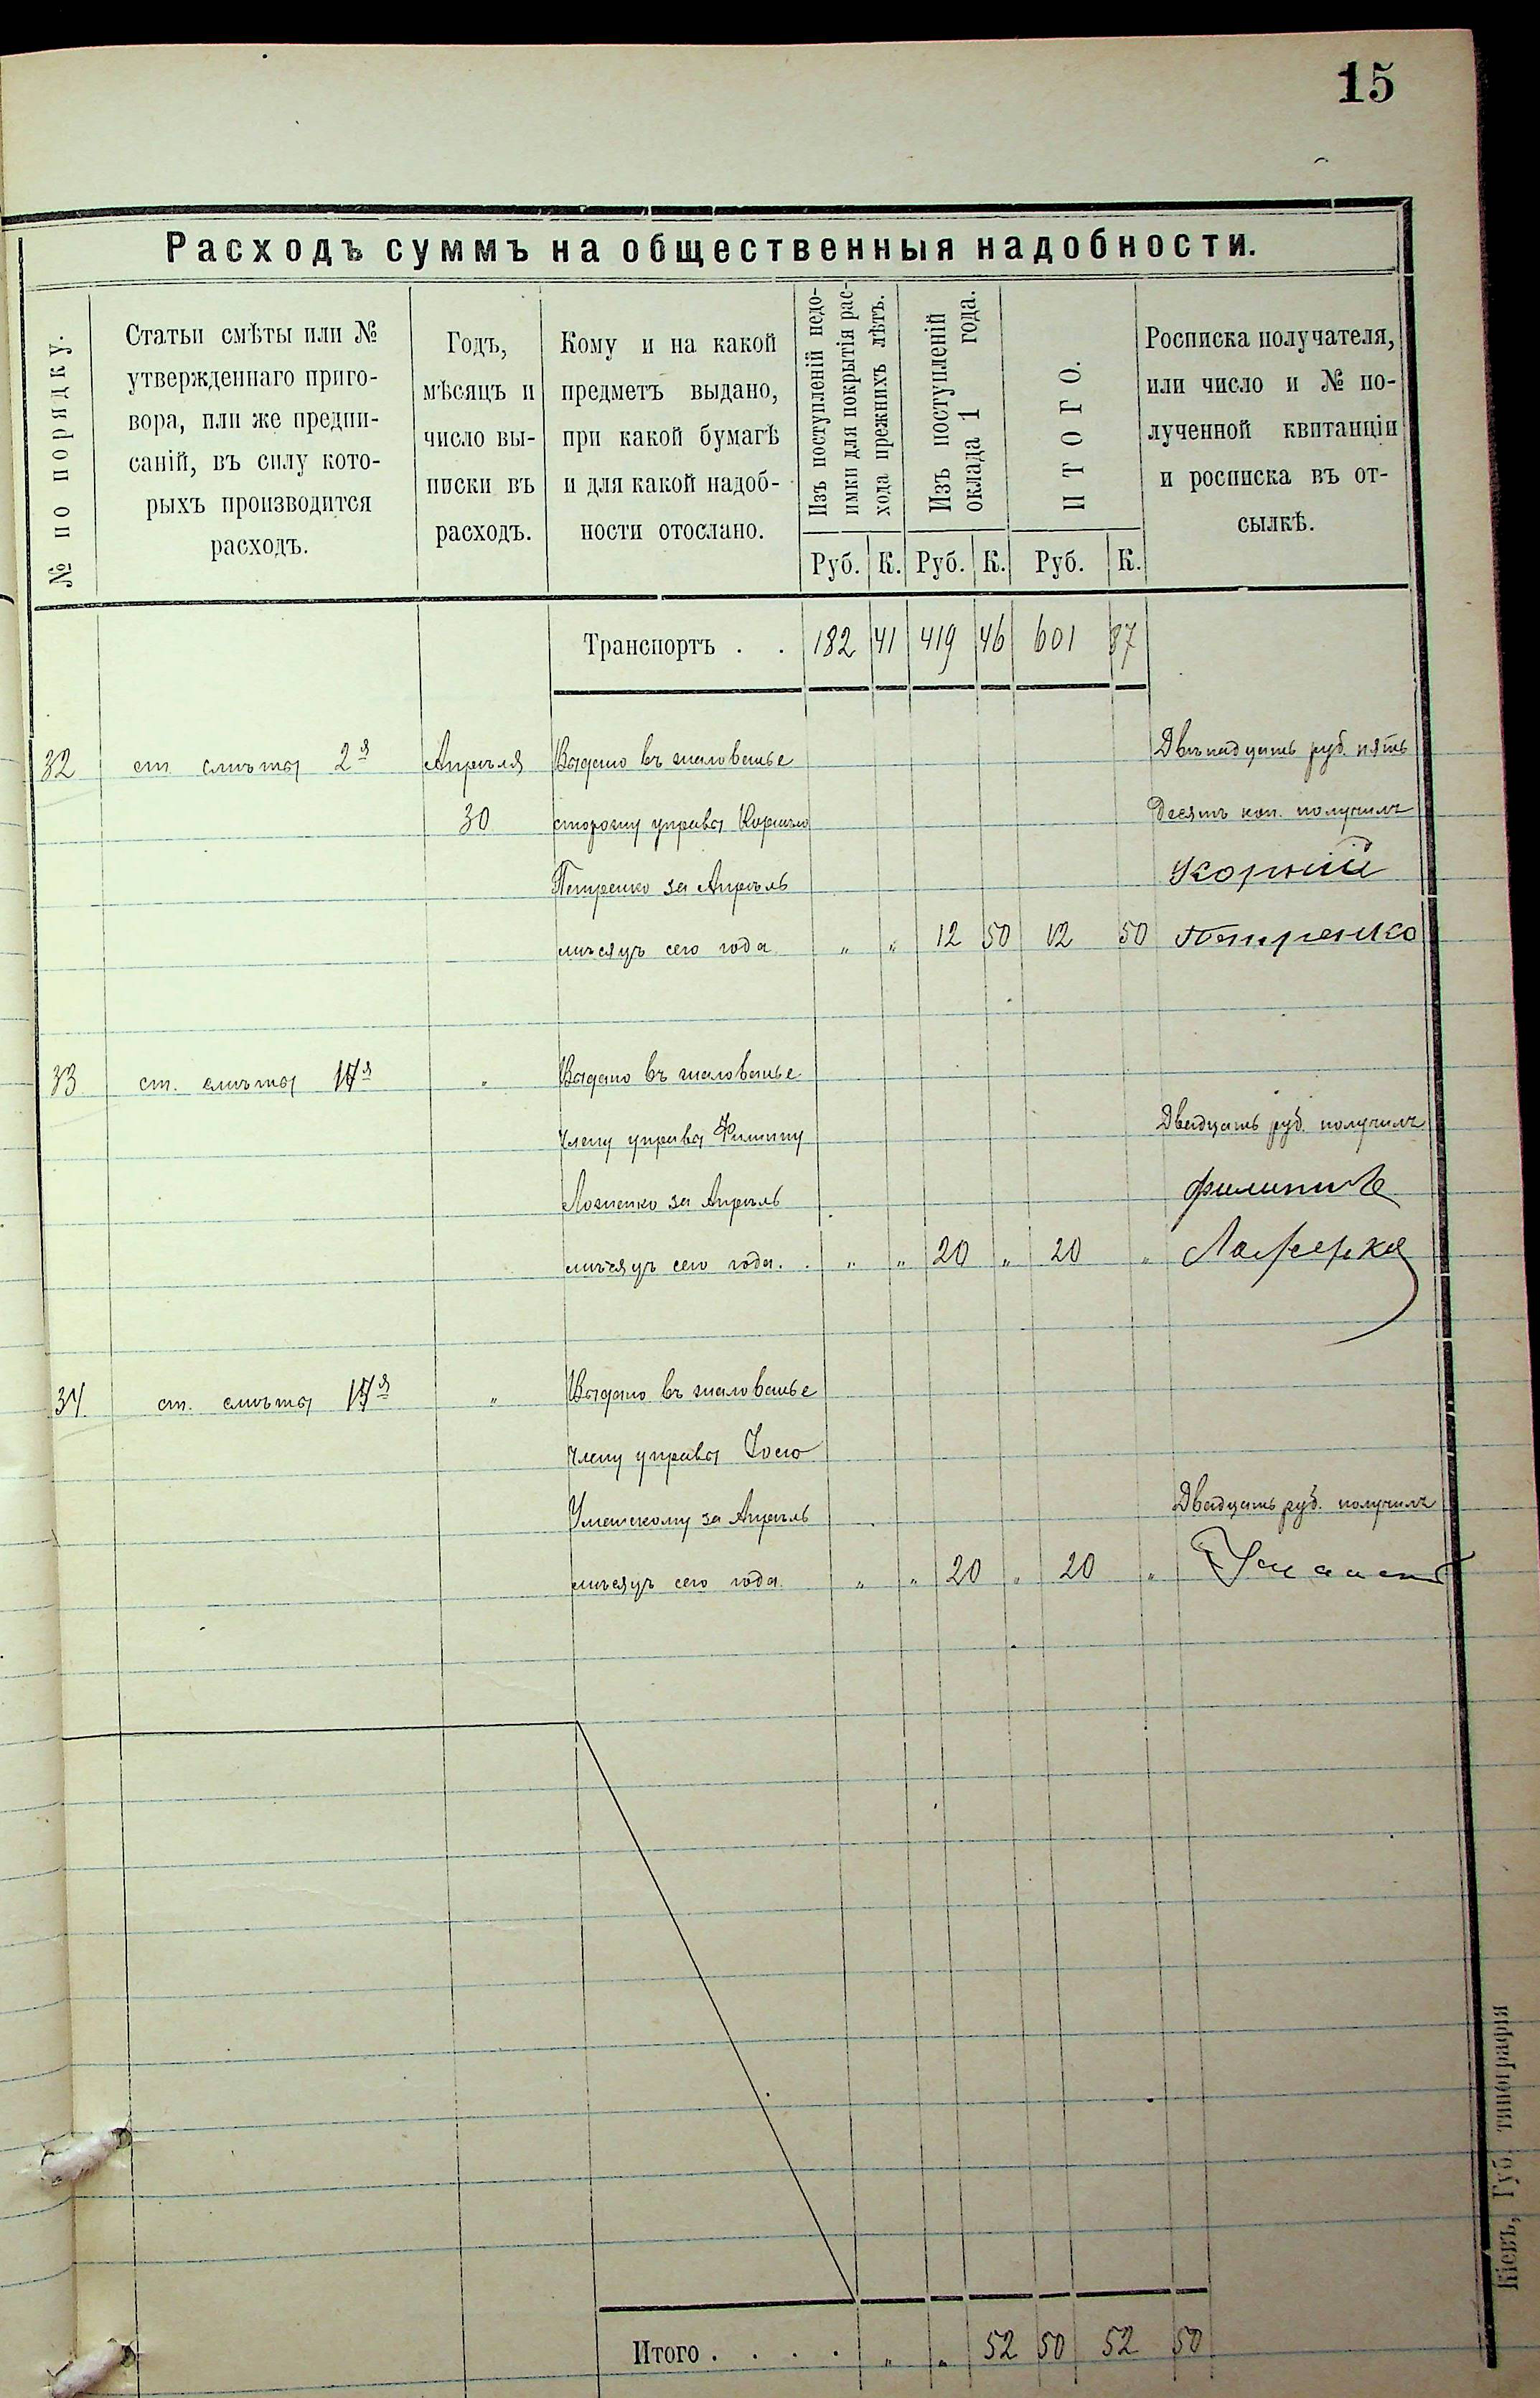 15
Расходъ суммъ на общественныя надобности.
№ по порядку.
Статьи смѣты или №
утвержденнаго приго-
вора, или же предпи-
саній, въ силу кото-
рыхъ производится
расходъ.
Годъ,
мѣсяцъ и
число вы-
писки въ
расходъ.
Кому и на какой
предметъ выдано,
при какой бумагѣ
и для какой надоб-
ности отослано.
Изъ поступленій недо-
имки для покрытія рас-
хода прежнихъ лѣтъ.
Изъ поступленій
оклада 1 года.
ИТОГО.
Росписка получателя,
или число и № по-
лученной квитанціи
и росписка въ от-
сылкѣ.
Руб. К. Руб. К. Руб. К.
Транспортъ . . 182 41 419 46 601 87
32 ст. смѣты 2я Апрѣля Выдано въ жалованье Двѣнадцать руб. пять
30 сторожу управы Корнѣю десятъ коп. получилъ
Петренко за Апрѣль Корній
мѣсяцъ сего года " " 12 50 12 50 Петренко
33 ст. смѣты " Выдано въ жалованье
члену управы Филиппу Двадцать руб. получилъ
за Апрѣль Филиппъ
мѣсяцъ сего года. . " " 20 " 20 "
34 ст. смѣты " Выдано въ жалованье
члену управы
Уманскому за Апрѣль Двадцать руб. получилъ
мѣсяцъ сего года. " " 20 " 20 "
Итого . . . . " " 52 50 52 50
Кіевъ, Губ. типографія